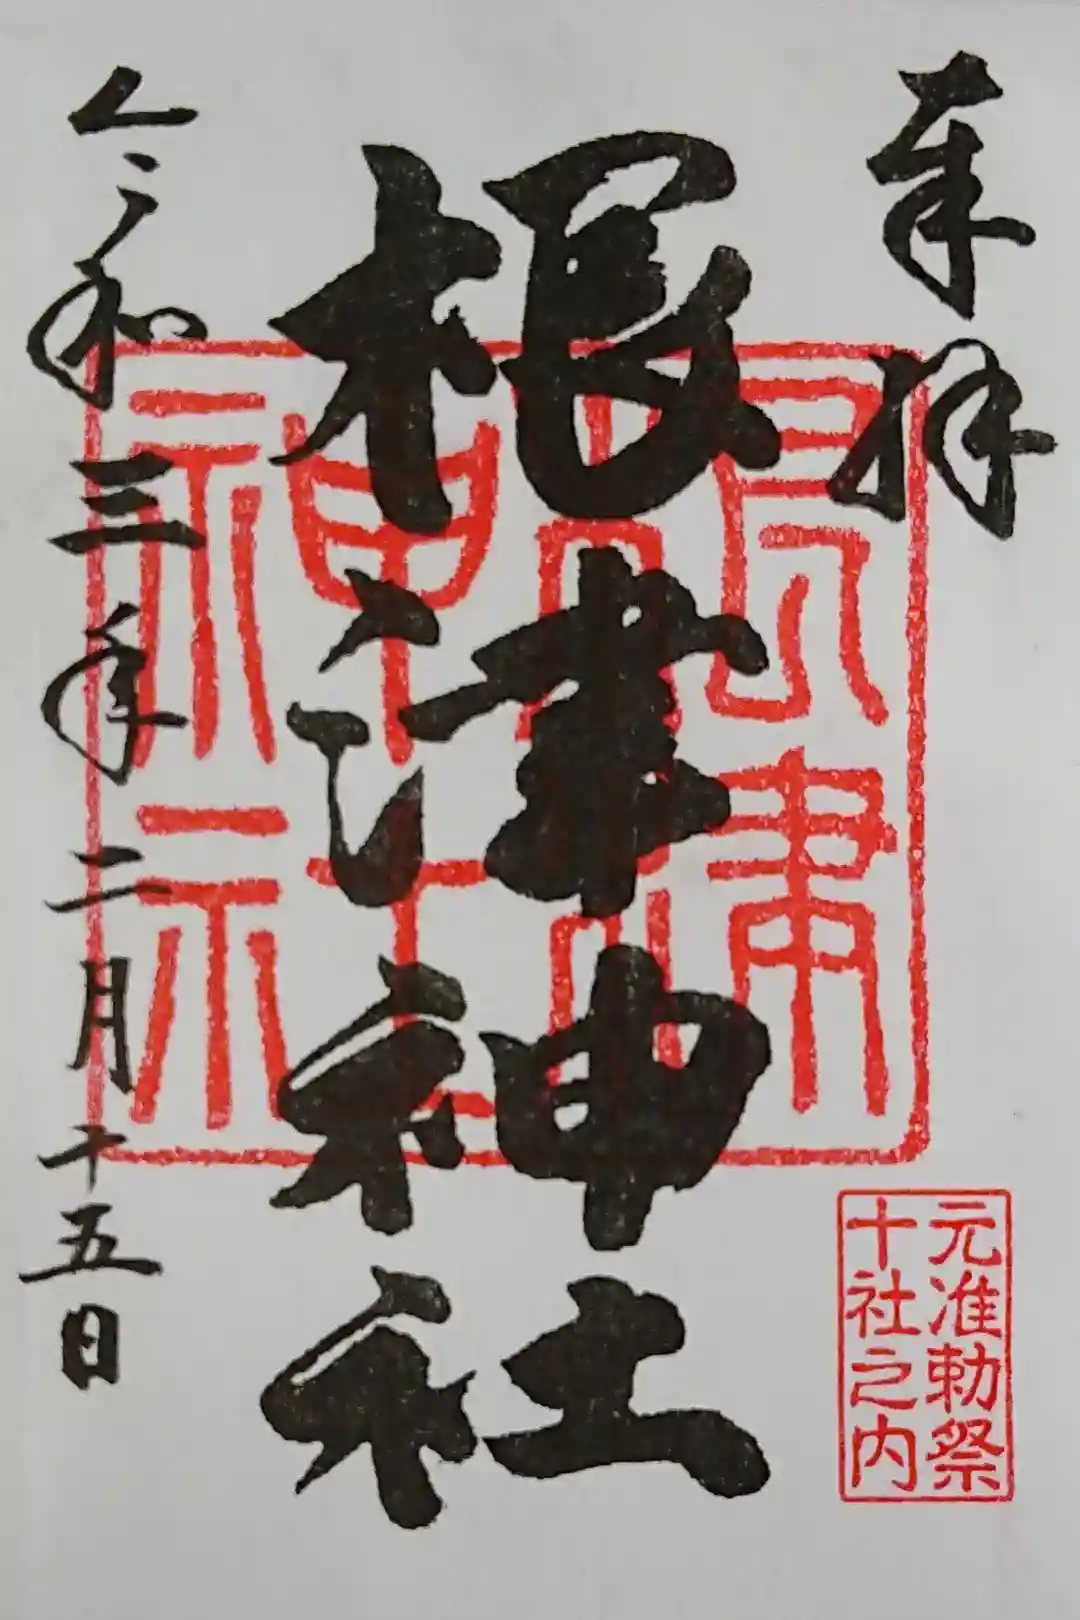 奉拝
元准勅祭
十社之内
根津神社
令和三年二月十五日